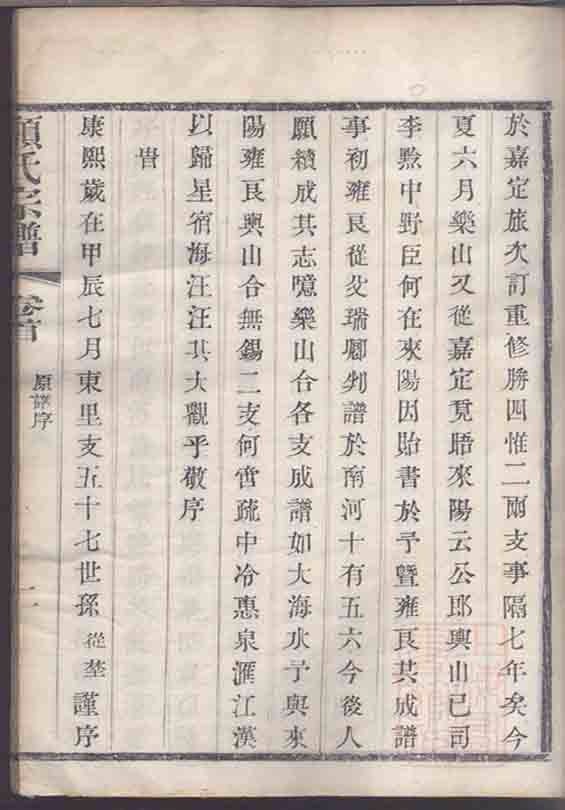 於嘉定旅次訂重修勝四惟二兩支事隔七年矣今
夏六月樂山又從嘉定覓晤來陽云公郎與山已司
李黔中野臣何在來陽因貽書於予暨雍艮共成譜
事初雍艮從父瑞卿刿譜於南河十有五六今後人
願續成其志噫樂山台各支成譜如大海水予與來
陽雍艮與山合無錫二支何啻疏中冷惠泉滙江漢
以歸星宿海汪汪其大觀乎敬序
旹
康熙歲在甲辰七月東里支五十七世孫從埜謹序
顧氏宗譜
卷首
原譜序
二